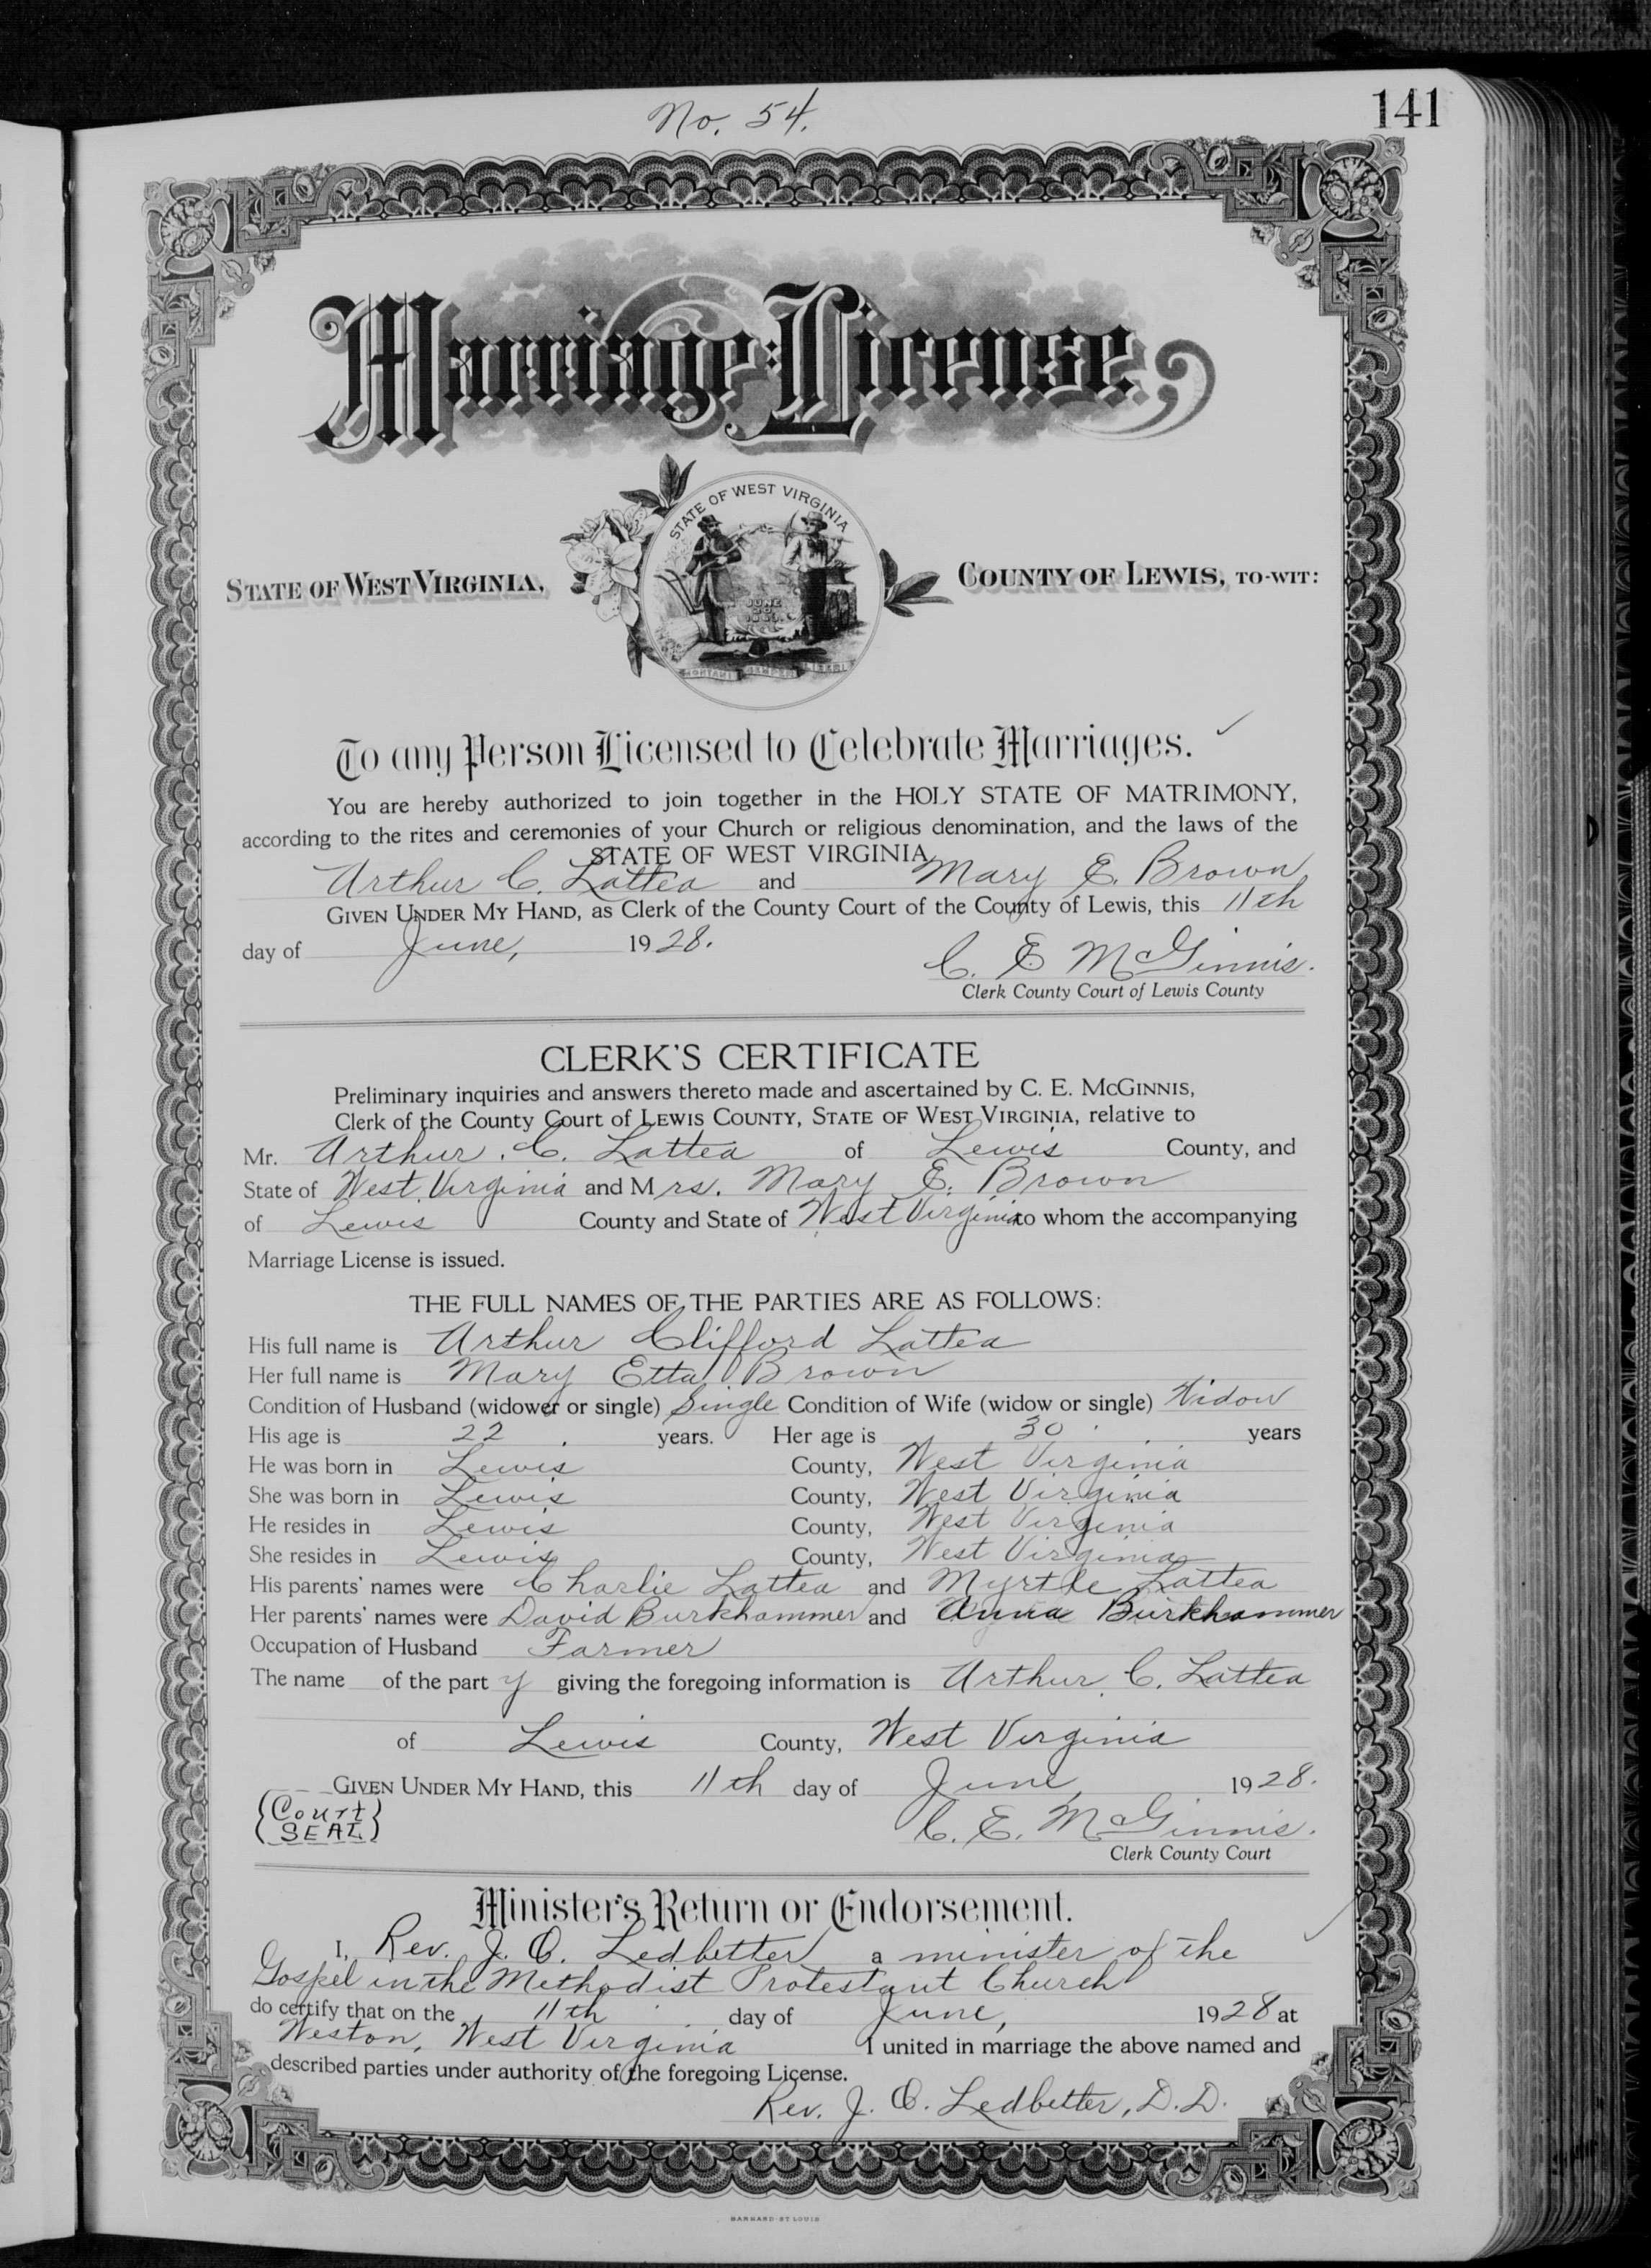 No. 54.
141
Marriage License,
STATE OF WEST VIRGINIA
JUNE
20
1863
MONTANI SEMPER LIBERI
STATE OF WEST VIRGINIA, COUNTY OF LEWIS, TO-WIT:
To any Person Licensed to Celebrate Marriages.
You are hereby authorized to join together in the HOLY STATE OF MATRIMONY,
according to the rites and ceremonies of your Church or religious denomination, and the laws of the
STATE OF WEST VIRGINIA
Arthur C. Lattea and Mary E. Brown
GIVEN UNDER MY HAND, as Clerk of the County Court of the County of Lewis, this 11th
day of June, 1928.
C. E McGinnis.
Clerk County Court of Lewis County
CLERK'S CERTIFICATE
Preliminary inquiries and answers thereto made and ascertained by C. E. MCGINNIS,
Clerk of the County Court of LEWIS COUNTY, STATE OF WEST VIRGINIA, relative to
Mr. Arthur. C. Lattea of Lewis County, and
State of West Virginia and Mrs. Mary E. Brown
of Lewis County and State of West Virginia to whom the accompanying
Marriage License is issued.
THE FULL NAMES OF THE PARTIES ARE AS FOLLOWS:
His full name is Arthur Clifford Lattea
Her full name is Mary Etta Brown
Condition of Husband (widower or single) Single Condition of Wife (widow or single) Widow
His age is 22 years. Her age is 30 years
He was born in Lewis County, West Virginia
She was born in Lewis County, West Virginia
He resides in Lewis County, West Virginia
She resides in Lewis County, West Virginia
His parents' names were Charlie Lattea and Myrtle Lattea
Her parents' names were David Burkhammer and Anna Burkhammer
Occupation of Husband Farmer
The name of the party giving the foregoing information is Arthur C. Lattea
of Lewis County, West Virginia
GIVEN UNDER MY HAND, this 11th day of June, 1928.
(Court
SEAL)
C. E. McGinnis.
Clerk County Court
Minister's Return or Endorsement.
I, Rev. J. O. Ledbetter a minister of the
Gospel in the Methodist Protestant Church
do certify that on the 11th day of June, 1928 at
Weston, West Virginia I united in marriage the above named and
described parties under authority of the foregoing License.
Rev. J. O. Ledbetter, D.D.
BARNARD-ST LOUIS